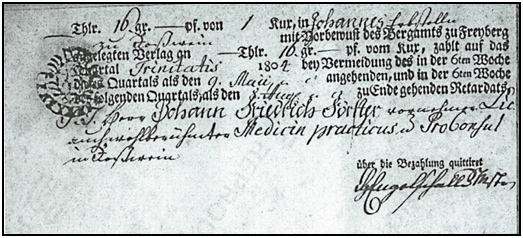 Thlr. 16 gr. — pf. von 1 Kux, in Johannes Erbstolln
zu Roßwein mit Vorbewust des Bergamts zu Freyberg
angelegten Verlag an — Thlr. 16. gr. — pf. vom Kux, zahlt auf das
Quartal Trinitatis 1804 bey Vermeidung des in der 6ten Woche
dieses Quartals als den 9. Maii angehenden, und in der 6ten
folgenden Quartals, als den zu Ende gehenden Retardats,
Herr Johann Friedrich Förster vornehmer
auch wohlberühmter Medicin practicus u. ProConsul
in Roßwein
über die Bezahlung quittiret